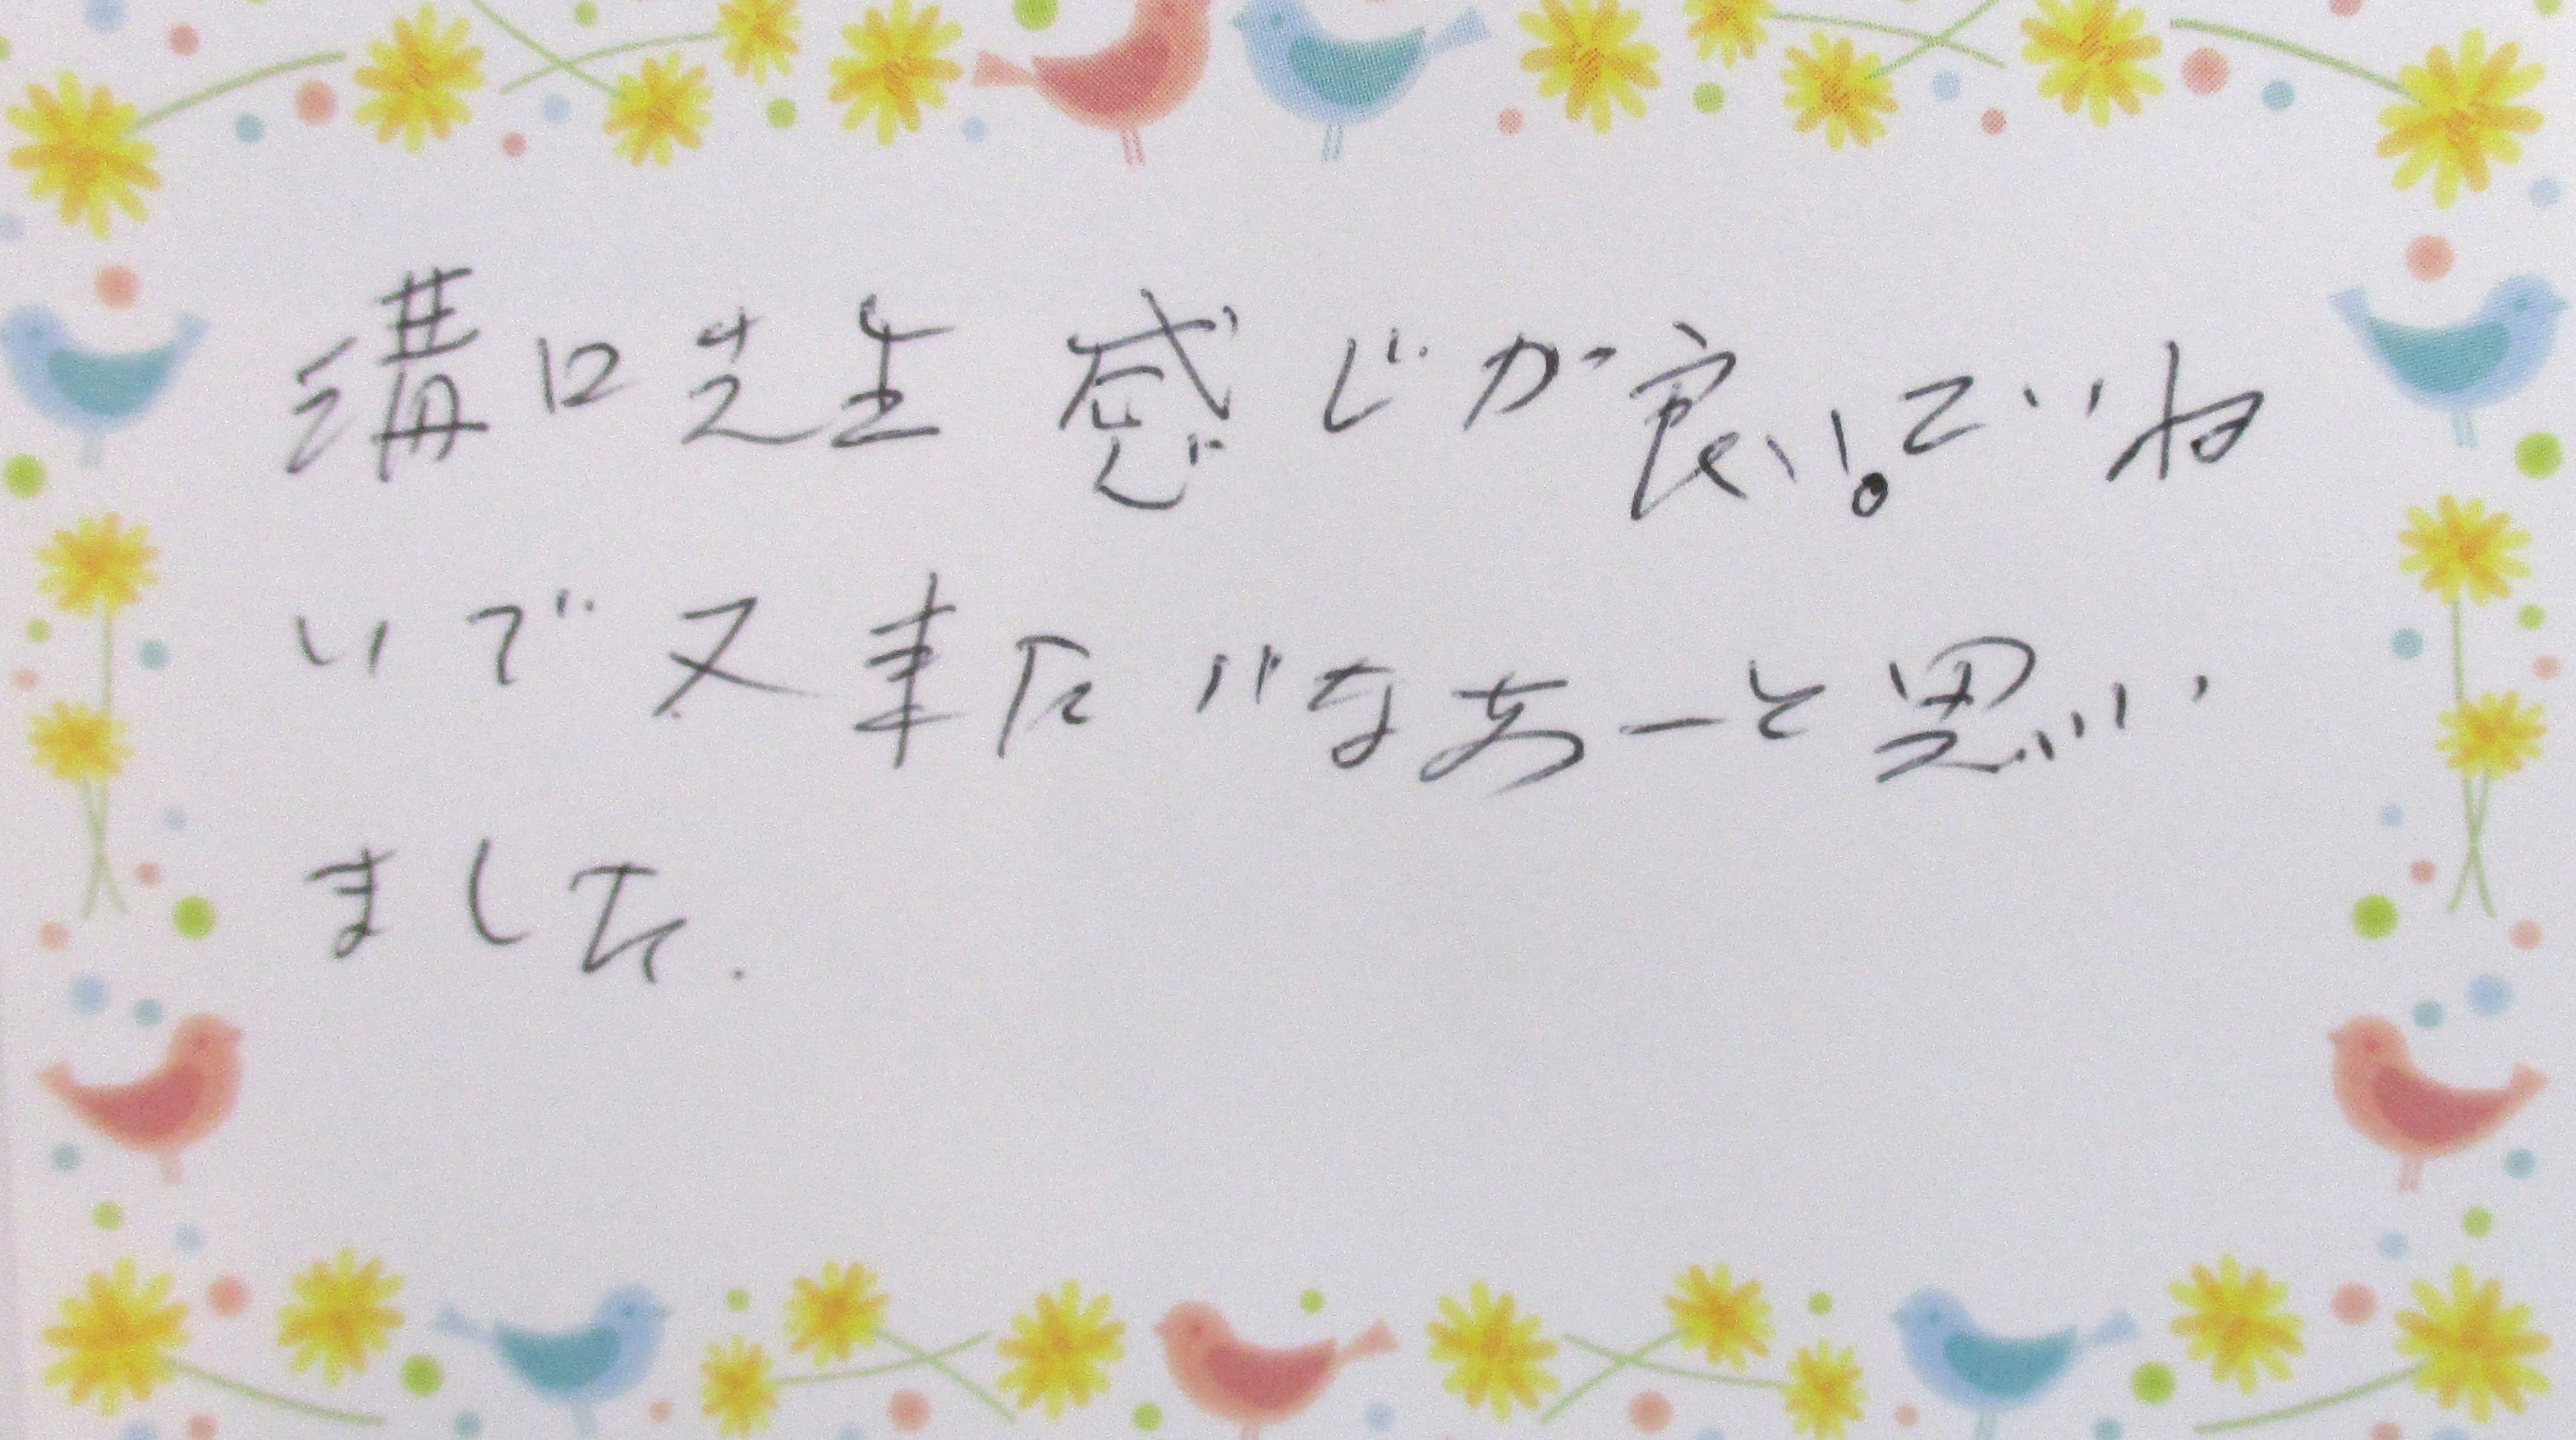 溝口先生 感じが良い。ていね
いで又来たいなあーと思い
ました.